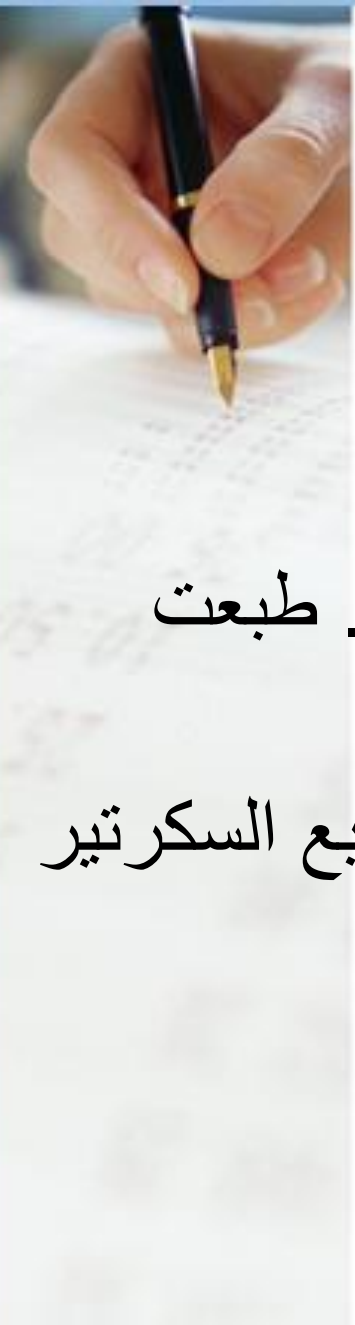 . طبعت
السكرتير